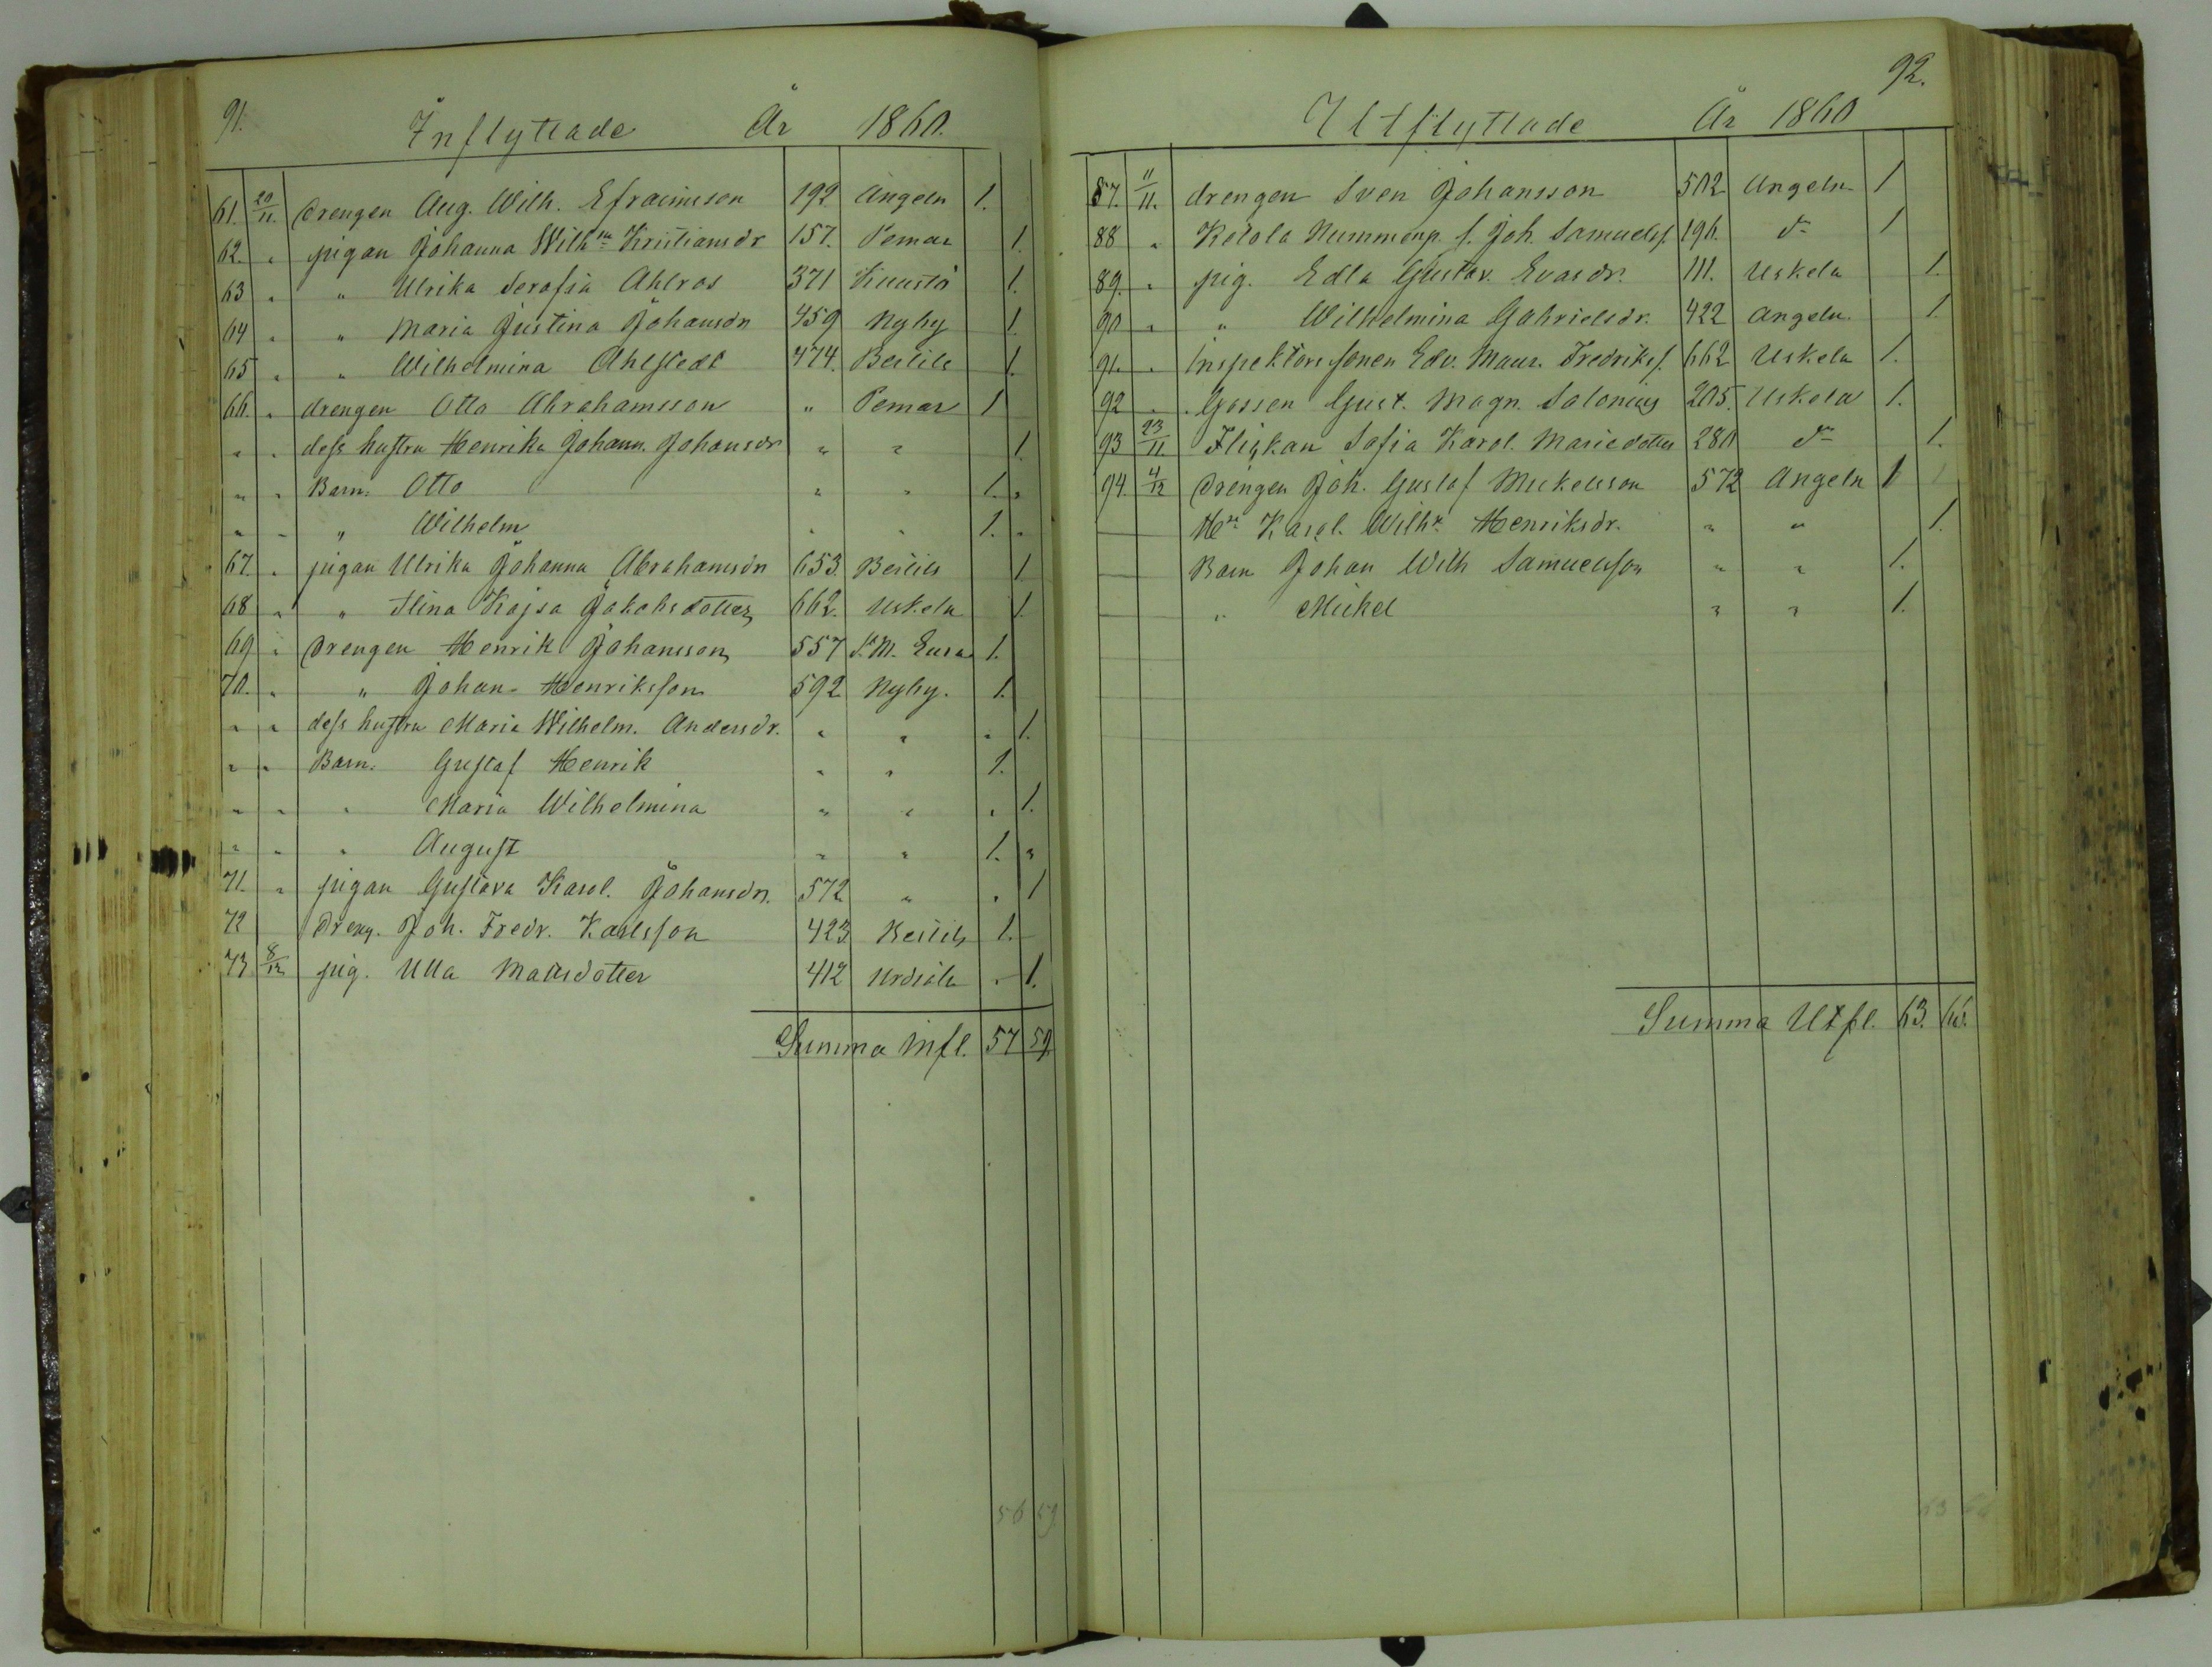 91.
Inflyttade År 1860.
61. 20/11. drengen Aug. Wilh. Efraimsson 192 Angeln 1.
62. " pigan Johanna Wilh:na Kristiansdr 157. Pemar 1.
63 " " Ulrika Serafia Ahlros 371 Kuustö 1.
64 " " Maria Justina Johansdr 459 Nyby 1.
65 " " Wilhelmina Ahlstedt 474. Beiiils 1.
66. " drengen Otto Abrahamsson " Pemar 1
" " dess hustru Henrika Johann. Johansdr " " 1.
" " Barn: Otto " " 1. "
" " " Wilhelm " " 1. "
67. " pigan Ulrika Johanna Abrahamsdr 653. Beiiils 1
68 " " Stina Kajsa Jakobsdotter 662. Uskela 1.
69 " drengen Henrik Johansson 557 S:t M. 1.
70. " " Johan Henriksson 592 Nyby. 1.
" " dess hustru Maria Wilhelm. Andersdr. " " " 1.
" " Barn. Gustaf Henrik " " 1.
" " " Maria Wilhelmina " " " 1.
" " " August " " 1. "
71. " pigan Gustava Karol. Johansdr. 572 " " 1
72 Dreng. Joh. Fredr. Karlsson 423 1.
73 8/12 pig. Ulla Mattsdotter 412 Urdiala " 1.
Summa Infl. 57 59.
56 59
92.
Utflyttade År 1860
87. 11/11. drengen Sven Johansson 502 Angeln 1
88 " Ketola Nummenp. s. Joh. Samuelss. 196. d:o 1
89. " pig. Edla Gustav. Evasdr. 111. Uskela 1.
90 " " Wilhelmina Gabrielsdr. 422 Angeln. 1.
91. " Inspektors sonen Edv. Maur. Fredrikss. 662 Uskela 1.
92 " Gossen Gust. Magn. Salonius 205. Uskela 1.
93 23/11. Flickan Sofia Karol. Mariedotter 280 d:o 1.
94. 4/12 Drengen Joh. Gustaf Mickelsson 572 Angeln 1
H:u Karol. Wilh:a Henriksdr. " " 1.
Barn Johan Wilh Samuelsson " " 1.
" Mickel " " 1.
Summa Utfl. 63. 66.
63